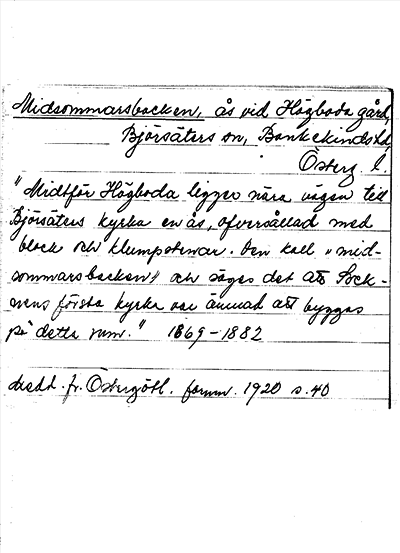 Midsommarsbacken, ås vid Högboda gård,
Björsäters sn, Bankekinds hd,
Österg. l.
"Midtför Högboda ligger nära vägen till
Björsäters kyrka en ås, ofversållad med
block och klumpstenar. Den kall. "mid-
sommarsbacken" och säges det att Sock-
nens första kyrka var ämnad att byggas
på detta rum." 1869-1882
Medd. fr. Östergötl. fornm. 1920 s. 40